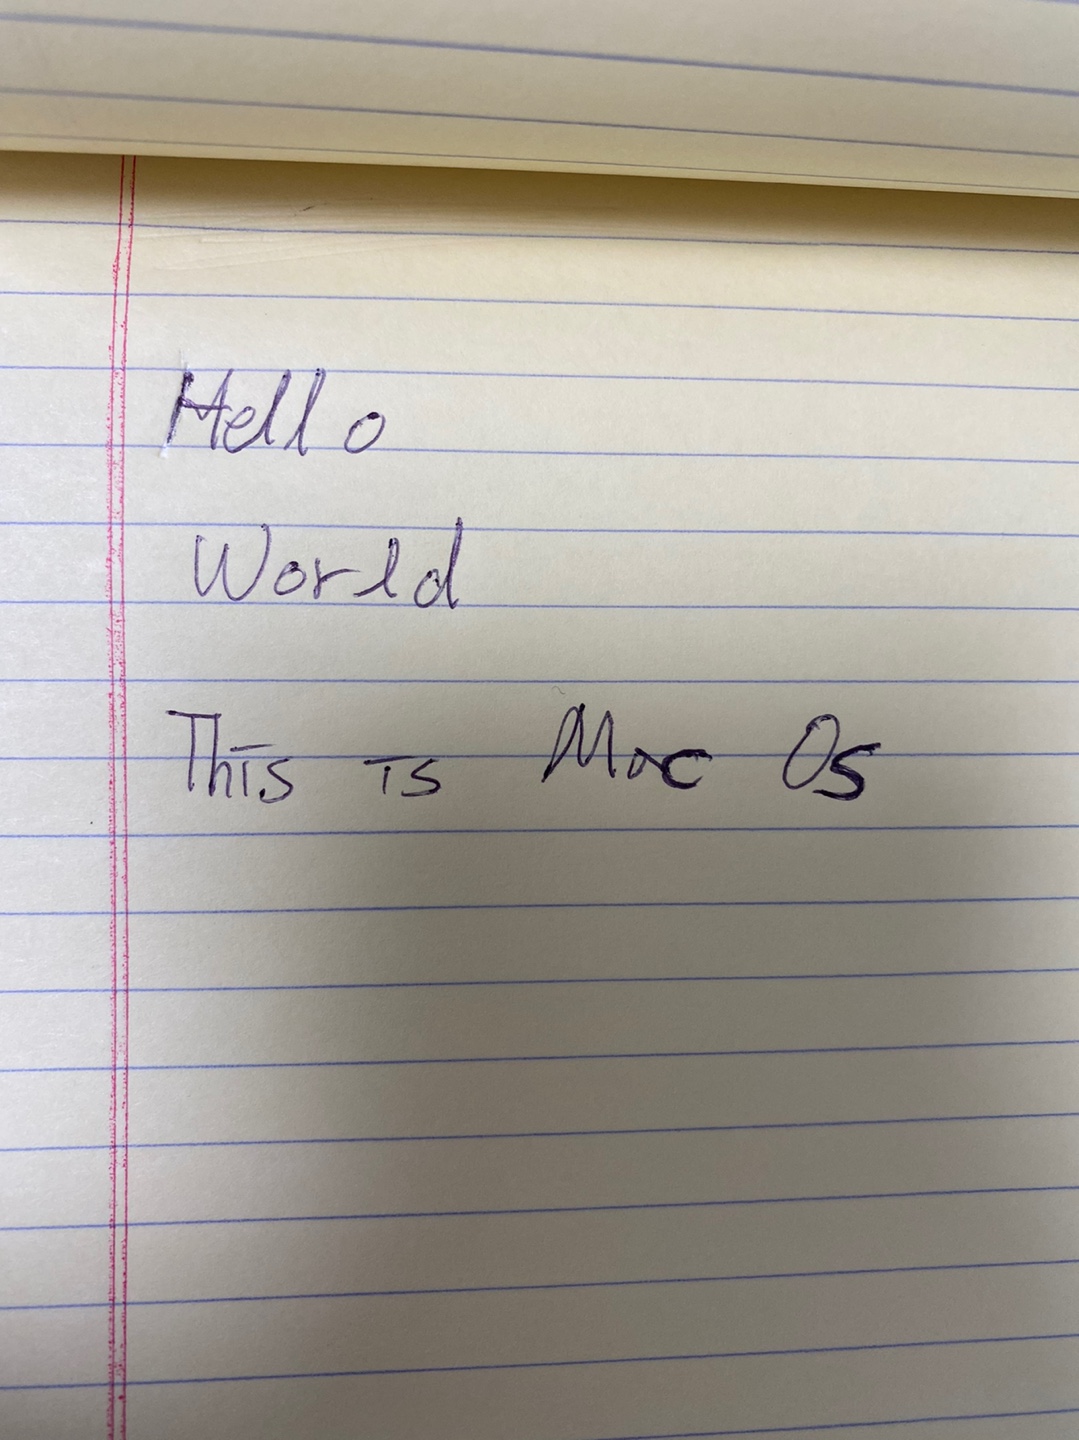 Hello
World
This is Mac Os